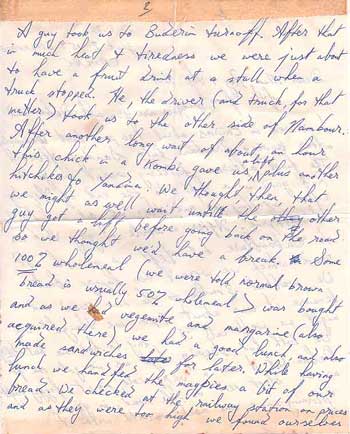 2
A guy took us to Buderim turnoff. After that
in much heat & tiredness we were just about
to have a fruit drink at a stall when a
truck stopped. He, the driver (and truck, for that
matter) took us to the other side of Nambour.
After another long wait of about an hour
this chick in a Kombi gave us a lift plus another
hitchiker to Yandina. We thought then that
we might as well wait untill the other
guy got a lift before going back on the road
so we thought we'd have a break. Some
100% wholemeal (we were told normal brown
bread is usually 50% wholemeal) was bought
and as we had vegemite and margarine (also
acquired there) we had a good lunch, and also
made sandwiches for later. While having
lunch we handfed the magpies a bit of our
bread. We checked at the railway station on prices
and as they were too high we found ourselves